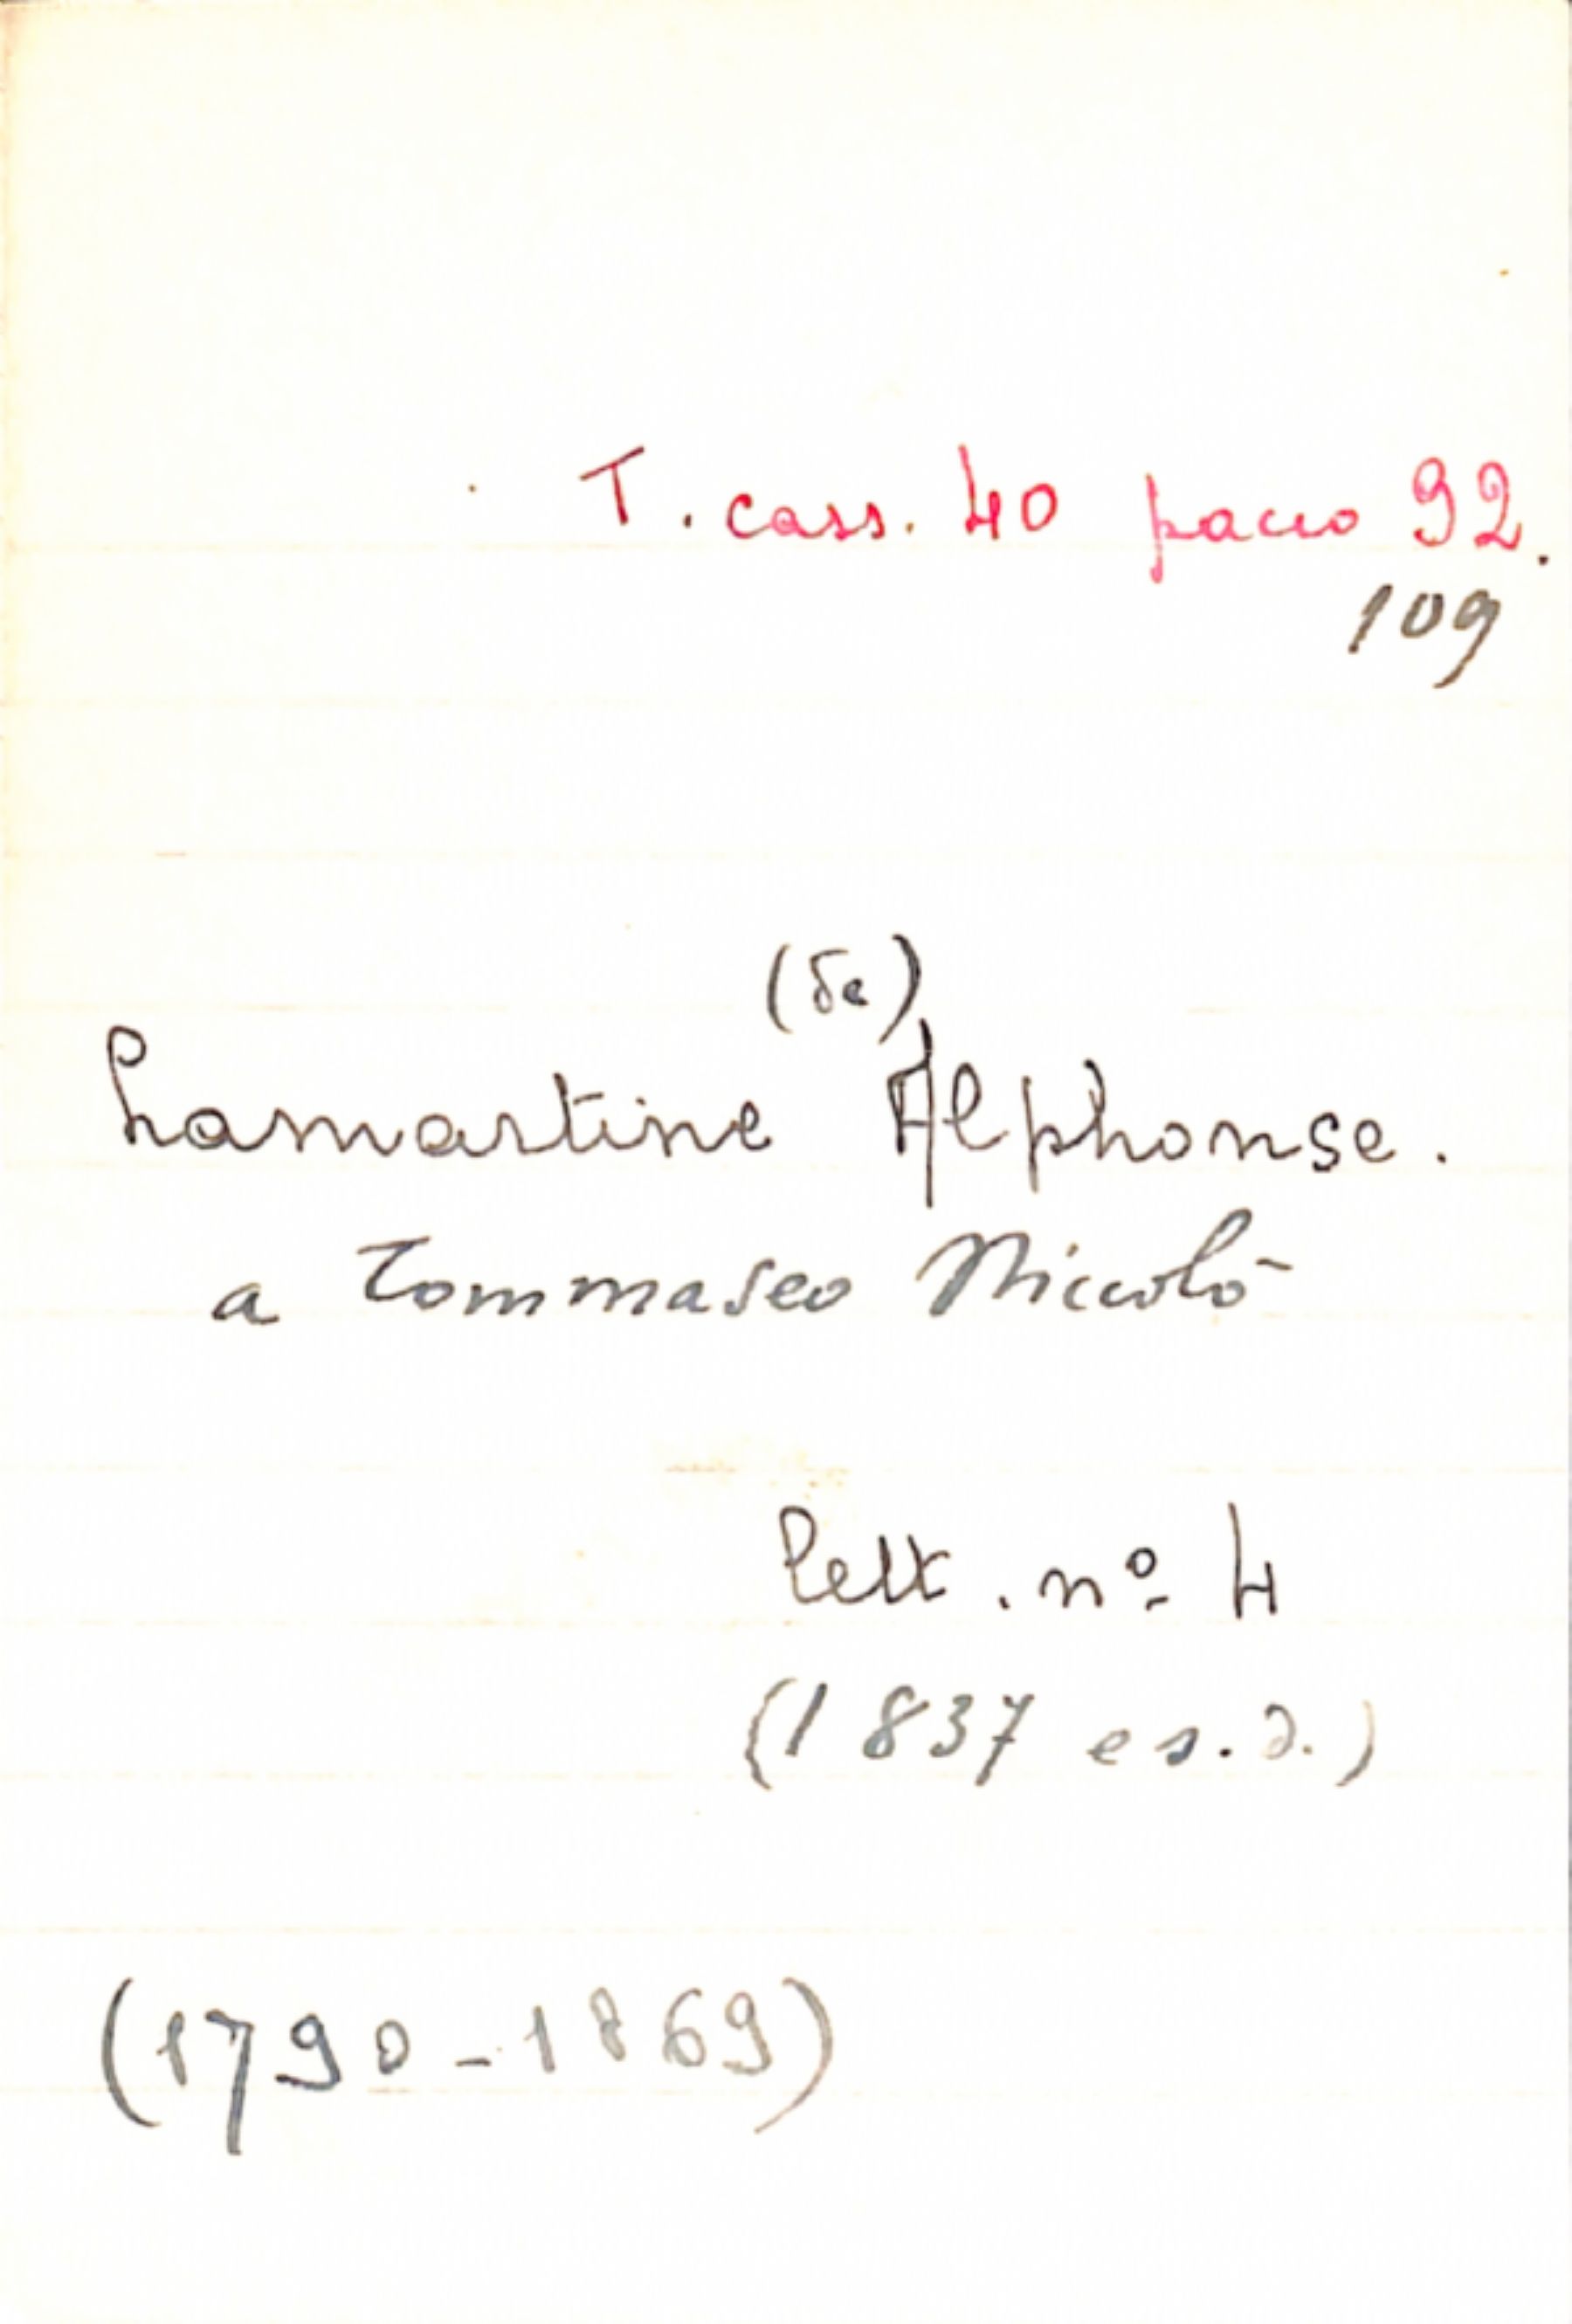 T. cass. 40 pacco 92.
109
(de)
Lamartine Alphonse.
a Tommaseo Niccolò
lett. nº 4
(1837 e s.d.)
(1790-1869)